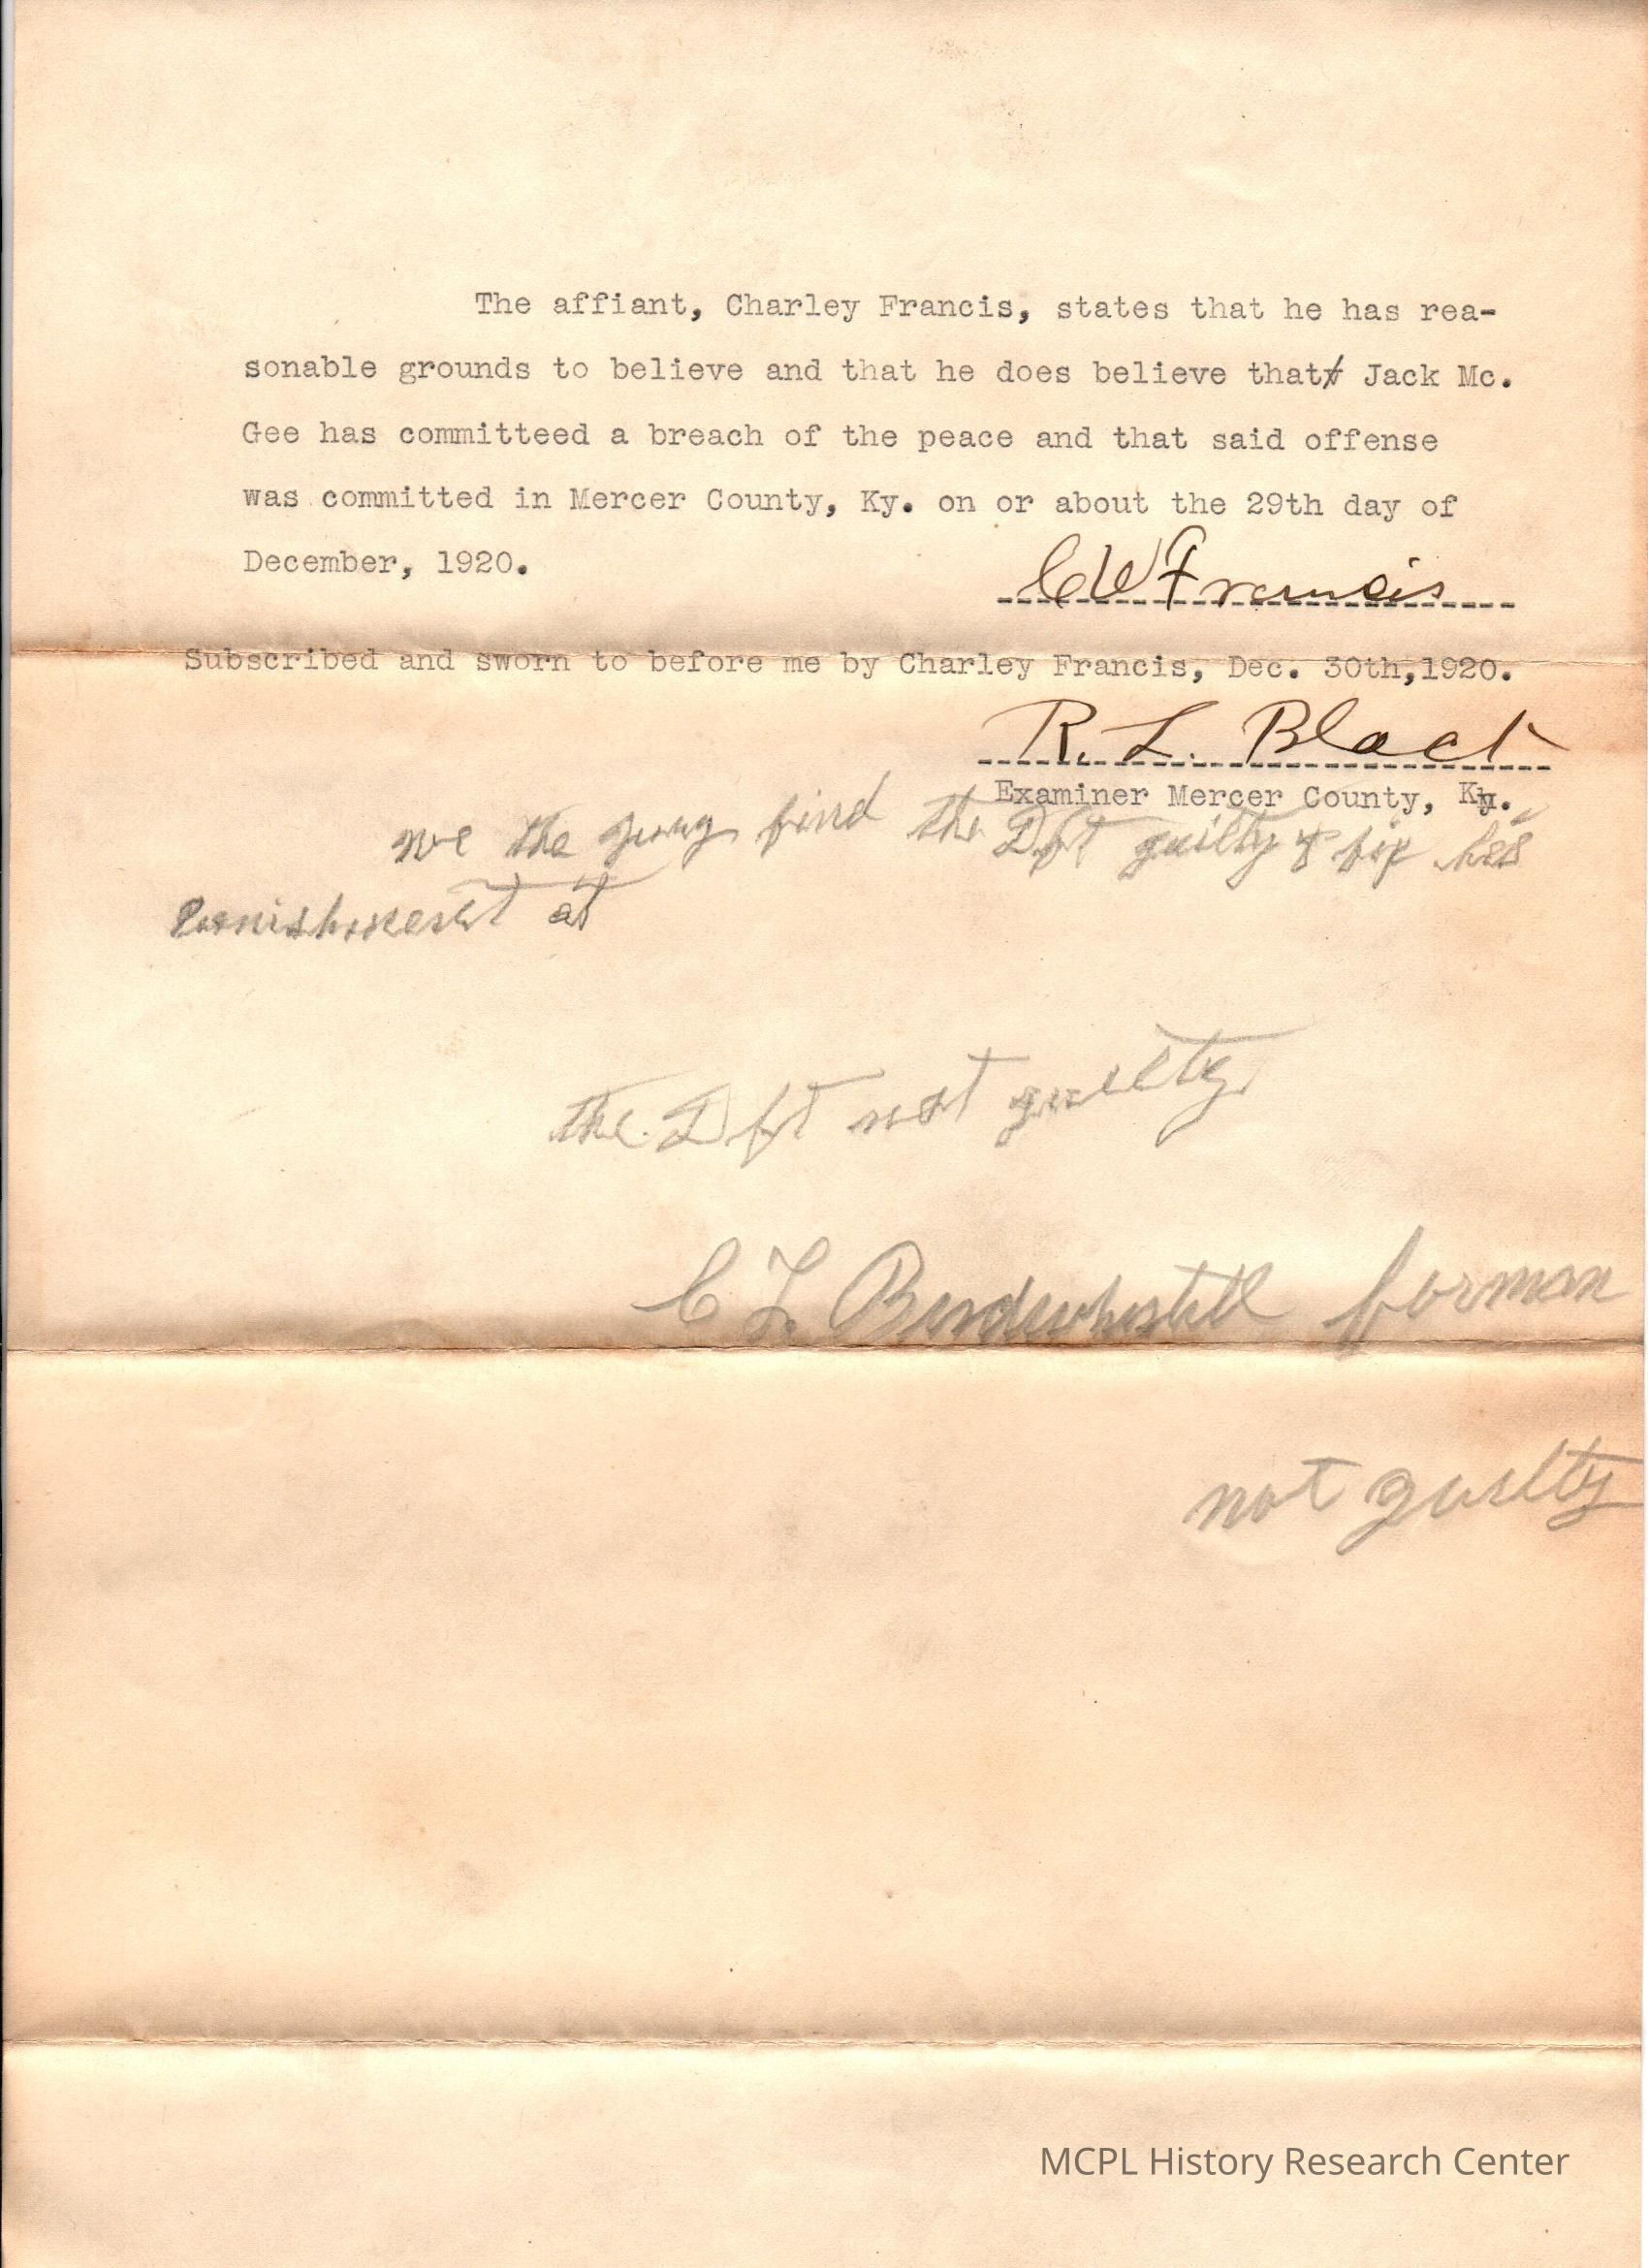 The affiant, Charley Francis, states that he has rea-
sonable grounds to believe and that he does believe that Jack Mc.
Gee has committeed a breach of the peace and that said offense
was committed in Mercer County, Ky. on or about the 29th day of
December, 1920.
C W Francis
Subscribed and sworn to before me by Charley Francis, Dec. 30th,1920.
R. L. Black
Examiner Mercer County, Ky.
we the jury find the Dft guilty & fix his
Punishment at
the Dft not guilty
C L forman
not guilty
MCPL History Research Center